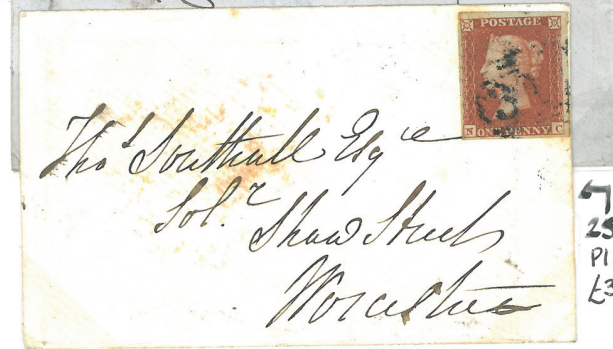 POSTAGE
N ONE PENNY C
Thos Southall Esqre
Solr
Shaw Street
Worcester
25
Pl
£3